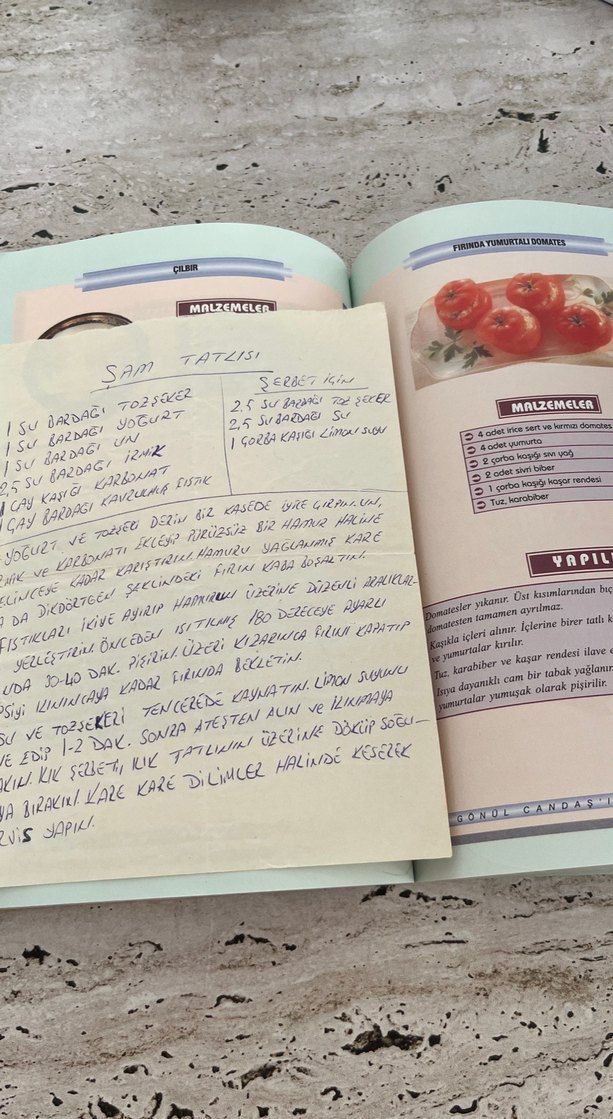 ÇILBIR
MALZEMELER
ŞAM TATLISI
1 SU BARDAĞI TOZŞEKER
1 SU BARDAĞI YOĞURT
1 SU BARDAĞI UN
2,5 SU BARDAĞI İRMİK
1 ÇAY KAŞIĞI KARBONAT
1 ÇAY BARDAĞI KAVRULMUŞ FISTIK
ŞERBET İÇİN
2,5 SU BARDAĞI TOZ ŞEKER
2,5 SU BARDAĞI SU
1 ÇORBA KAŞIĞI LİMON SUYU
YOĞURT VE TOZŞEKERİ DERİN BİR KASEDE İYİCE ÇIRPIN. UN,
VE KARBONATI EKLEYİP PÜRÜZSÜZ BİR HAMUR HALİNE
KADAR KARIŞTIRIN. HAMURU YAĞLANMIŞ KARE
DA DİKDÖRTGEN ŞEKLİNDEKİ FIRIN KABA BOŞALTIN.
FISTIKLARI İKİYE AYIRIP HAMURUN ÜZERİNE DÜZENLİ ARALIKLAR-
YERLEŞTİRİN. ÖNCEDEN ISITILMIŞ 180 DERECEYE AYARLI
30-40 DAK. PİŞİRİN. ÜZERİ KIZARINCA FIRINI KAPATIP
ILIKINCAYA KADAR FIRINDA BEKLETİN.
SU VE TOZŞEKERİ TENCEREDE KAYNATIN. LİMON SUYUNU
EDİP 1-2 DAK. SONRA ATEŞTEN ALIN VE ILINMAYA
ILIK ŞERBETİ, ILIK TATLININ ÜZERİNE DÖKÜP SOĞU-
YA BIRAKIN. KARE KARE DİLİMLER HALİNDE KESEREK
YAPIN.
FIRINDA YUMURTALI DOMATES
MALZEMELER
4 adet irice sert ve kırmızı domates
4 adet yumurta
2 çorba kaşığı sıvı yağ
2 adet sivri biber
1 çorba kaşığı kaşar rendesi
Tuz, karabiber
YAPILI
Domatesler yıkanır. Üst kısımlarından
domatesten tamamen ayrılmaz.
Kaşıkla içleri alınır. İçlerine birer tatlı
ve yumurtalar kırılır.
Tuz, karabiber ve kaşar rendesi ilave
Isıya dayanıklı cam bir tabak
yumurtalar yumuşak olarak pişirilir.
GÖNÜL CANDAŞ'I